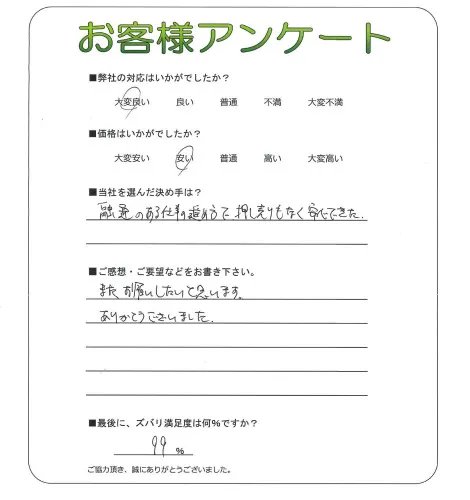 お客様アンケート
■弊社の対応はいかがでしたか？
大変良い 良い 普通 不満 大変不満
■価格はいかがでしたか？
大変安い 安い 普通 高い 大変高い
■当社を選んだ決め手は？
融通のある仕事の進め方で押し売りもなく安心できた.
■ご感想・ご要望などをお書き下さい。
また お願いしたいと思います.
ありがとうございました.
■最後に、ズバリ満足度は何％ですか？
99 %
ご協力頂き、誠にありがとうございました。